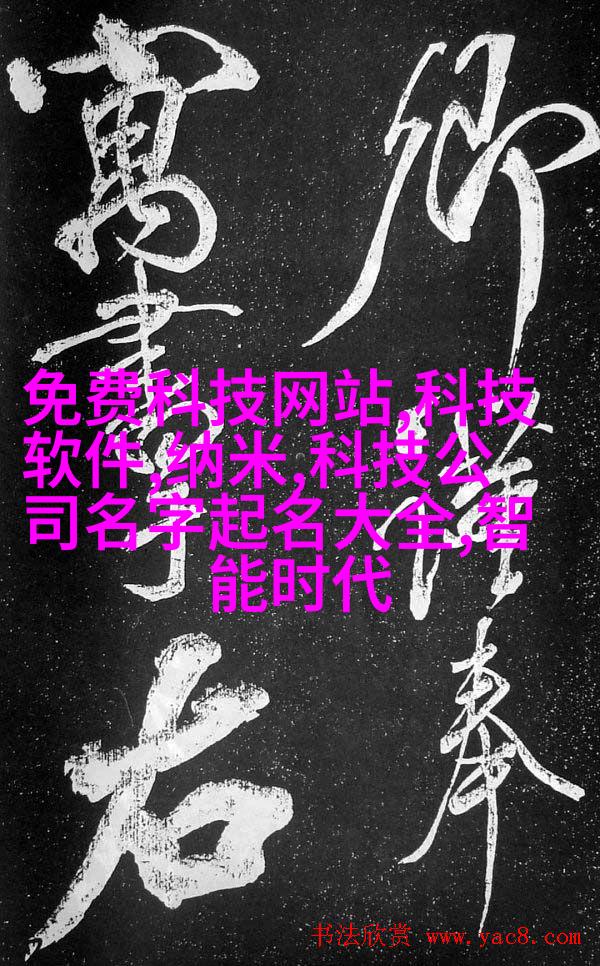 卿奉
寓書右
免费科技网站,科技
软件,纳米,科技公
司名字起名大全,智
能时代
书法欣赏 www.yac8.com